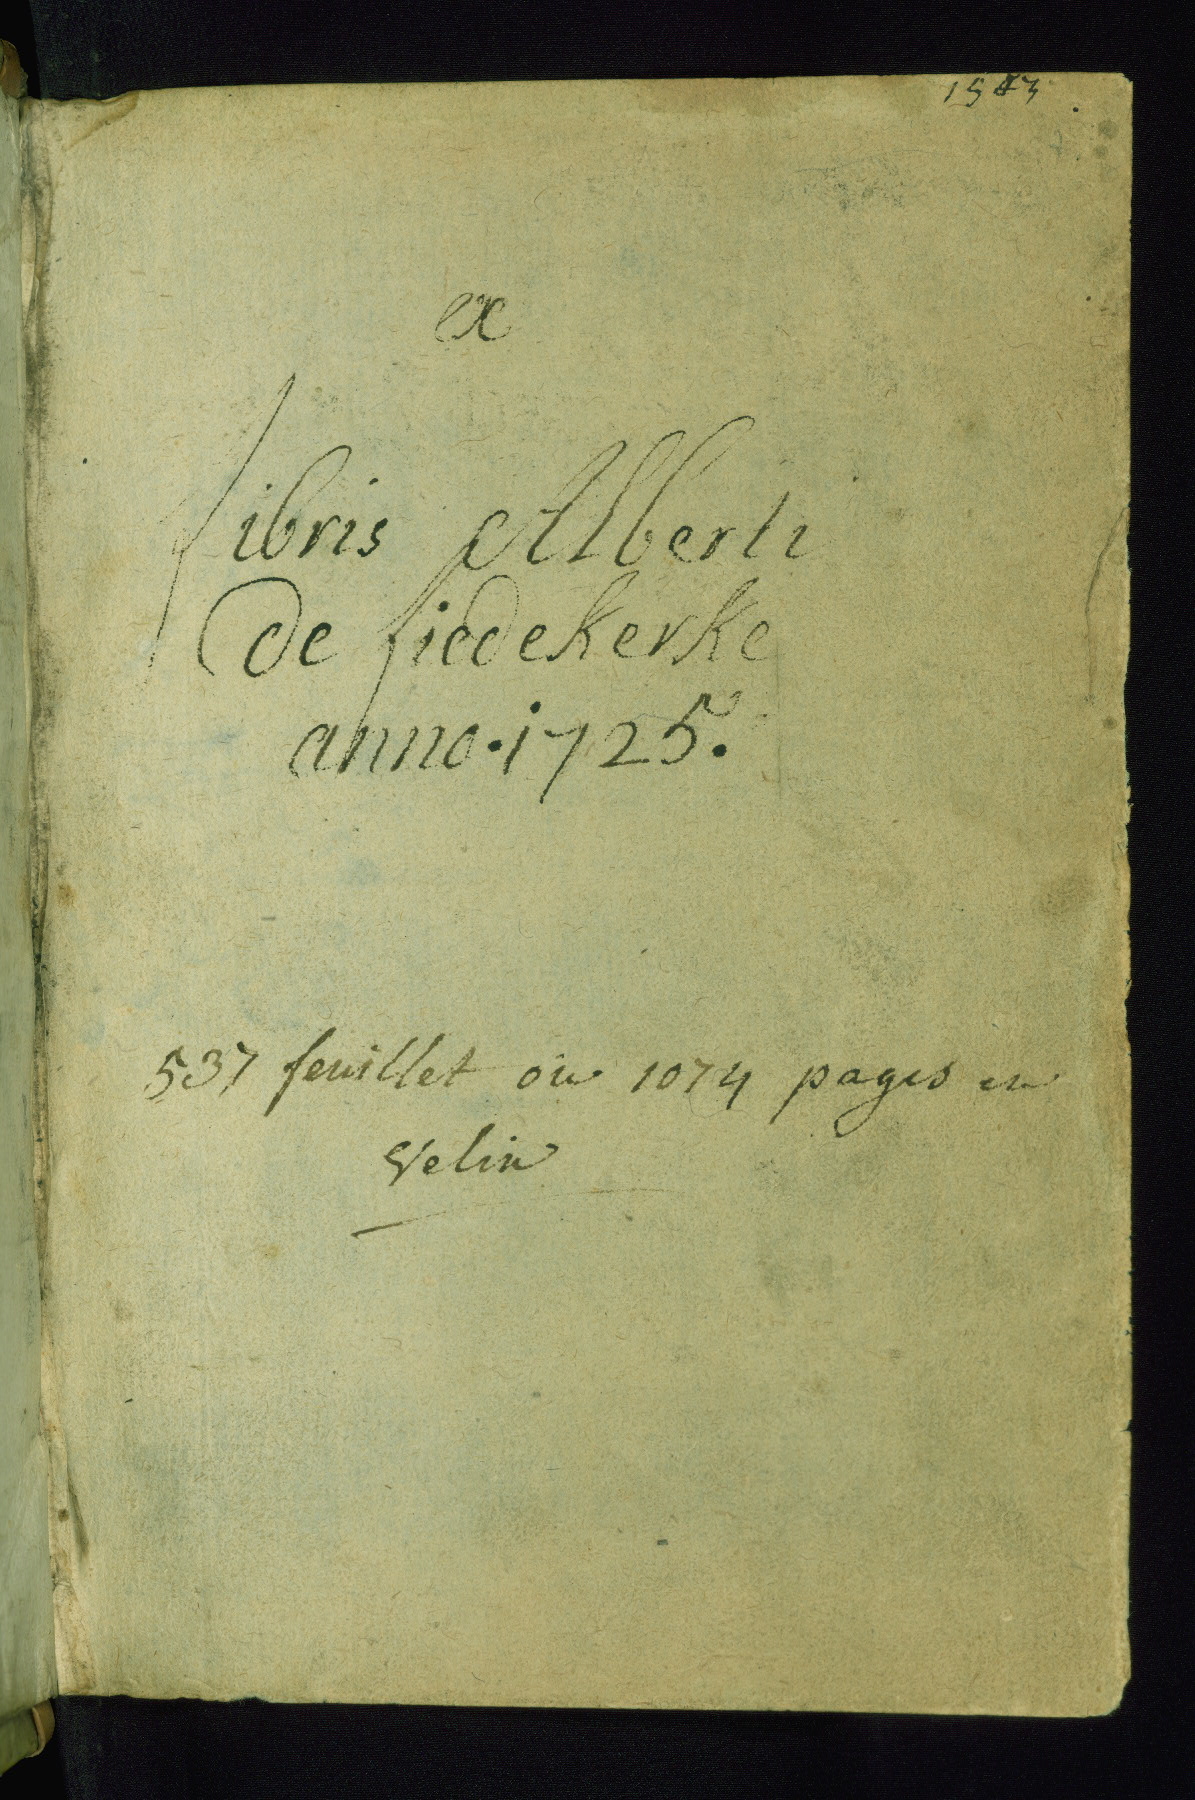 ex
libris Alberti
de liedekerke
anno · 1725.
537 feuillet ou 1074 pages en
Velin